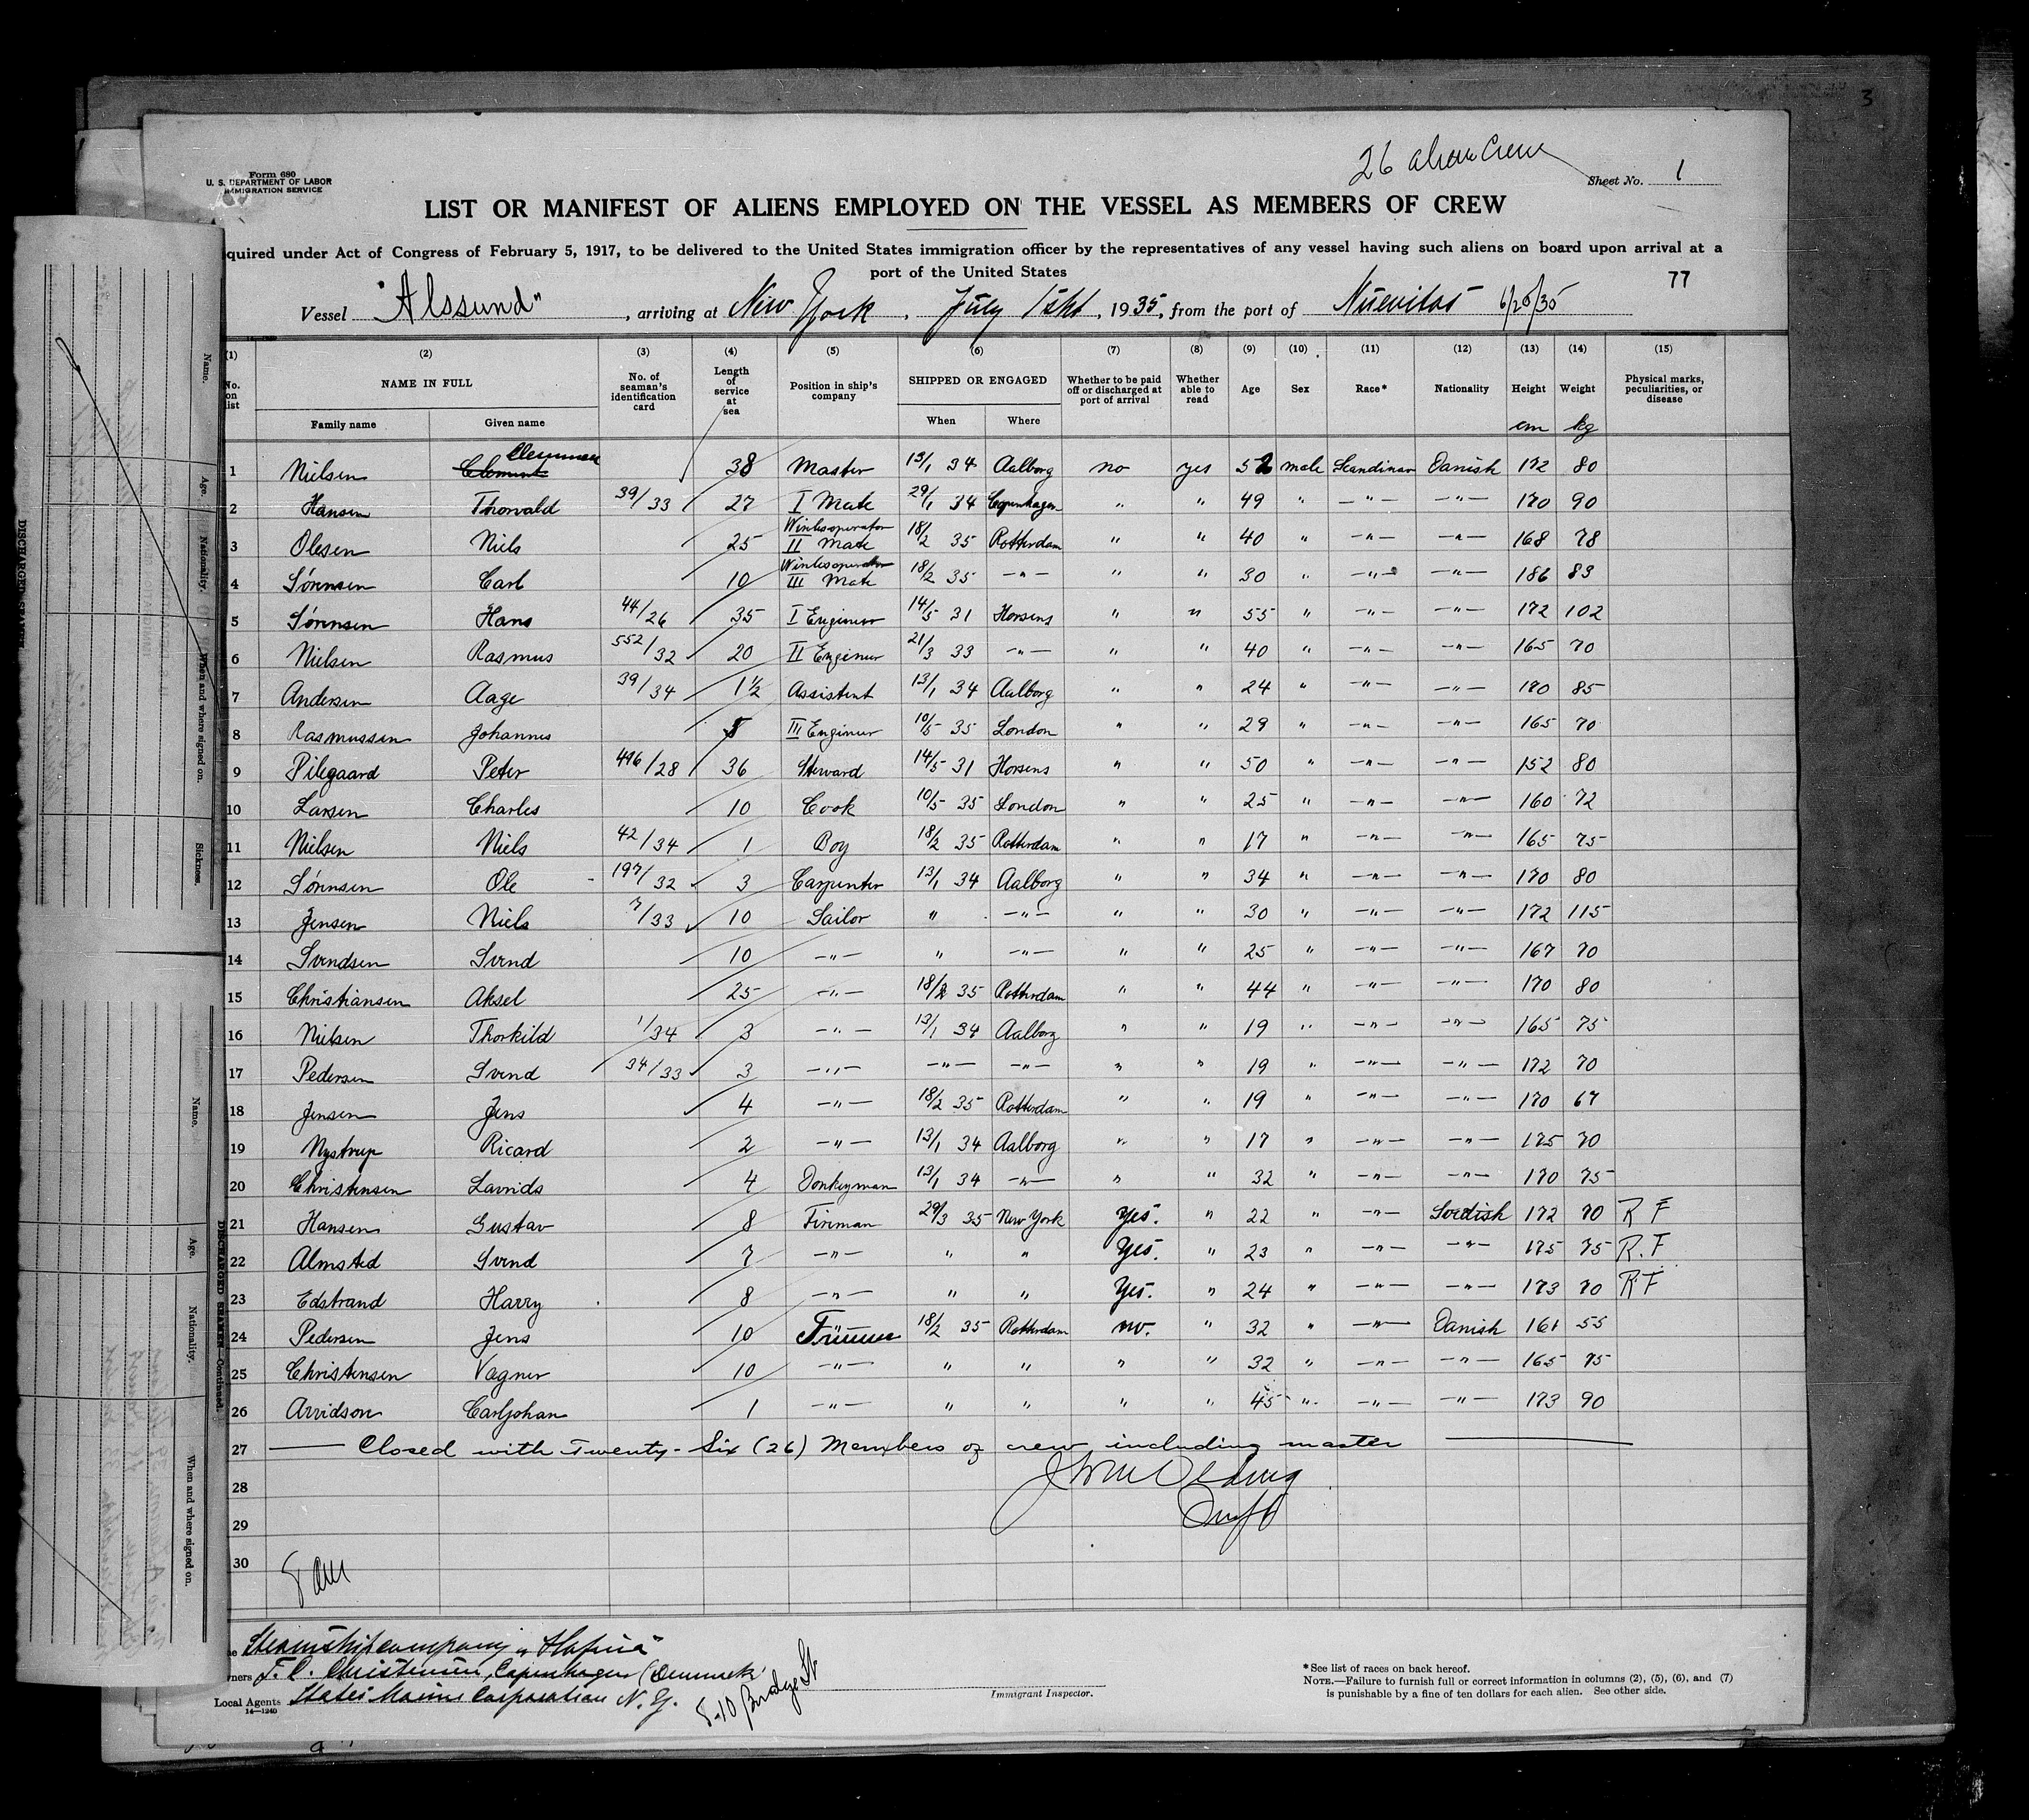 3
26 alien Crew
Form 680
U. S. DEPARTMENT OF LABOR
IMMIGRATION SERVICE
Sheet No. 1
LIST OR MANIFEST OF ALIENS EMPLOYED ON THE VESSEL AS MEMBERS OF CREW
quired under Act of Congress of February 5, 1917, to be delivered to the United States immigration officer by the representatives of any vessel having such aliens on board upon arrival at a
port of the United States
77
Vessel "Alssund", arriving at New York, July 1sht, 1935, from the port of Nuevitas 6/25/35
(1) (2) (3) (4) (5) (6) (7) (8) (9) (10) (11) (12) (13) (14) (15)
No. on list NAME IN FULL No. of seaman's identification card Length of service at sea Position in ship's company SHIPPED OR ENGAGED Whether to be paid off or discharged at port of arrival Whether able to read Age Sex Race* Nationality Height Weight Physical marks, peculiarities, or disease
Family name Given name When Where cm kg
1 Nielsen Clemmen 38 Master 13/1 34 Aalborg no yes 52 male Scandinav Danish 172 80
2 Hansen Thorvald 39/33 27 I Mate 29/1 34 Copenhagen " " 49 " -"- -"- 170 90
3 Olesen Niels 25 Wirelesoperator II Mate 18/2 35 Rotterdam " " 40 " -"- -"- 168 78
4 Sørensen Carl 10 Wirelesoperator III Mate 18/2 35 -"- " " 30 " -"- -"- 186 83
5 Sørensen Hans 44/26 35 I Engineer 14/5 31 Horsens " " 55 " -"- -"- 172 102
6 Nielsen Rasmus 552/32 20 II Engineer 21/3 33 -"- " " 40 " -"- -"- 165 70
7 Andersen Aage 39/34 1½ Assistent 13/1 34 Aalborg " " 24 " -"- -"- 180 85
8 Rasmussen Johannes 5 III Engineer 10/5 35 London " " 29 " -"- -"- 165 70
9 Pilegaard Peter 496/28 36 Steward 14/5 31 Horsens " " 50 " -"- -"- 152 80
10 Larsen Charles 10 Cook 10/5 35 London " " 25 " -"- -"- 160 72
11 Nielsen Niels 42/34 1 Boy 18/2 35 Rotterdam " " 17 " -"- -"- 165 75
12 Sørensen Ole 197/32 3 Carpenter 13/1 34 Aalborg " " 34 " -"- -"- 170 80
13 Jensen Niels 7/33 10 Sailor " -"- " " 30 " -"- -"- 172 115
14 Svendsen Svend 10 -"- " -"- " " 25 " -"- -"- 167 70
15 Christiansen Aksel 25 -"- 18/2 35 Rotterdam " " 44 " -"- -"- 170 80
16 Nielsen Thorkild 1/34 3 -"- 13/1 34 Aalborg " " 19 " -"- -"- 165 75
17 Pedersen Svend 34/33 3 -"- -"- -"- " " 19 " -"- -"- 172 70
18 Jensen Jens 4 -"- 18/2 35 Rotterdam " " 19 " -"- -"- 170 67
19 Nystrup Ricard 2 -"- 13/1 34 Aalborg " " 17 " -"- -"- 175 70
20 Christensen Lavrids 4 Donkeyman 13/1 34 -"- " " 32 " -"- -"- 170 75
21 Hansen Gustav 8 Fireman 29/3 35 New York Yes. " 22 " -"- Svedish 172 70 R F
22 Almsted Svend 7 -"- " " Yes. " 23 " -"- -"- 175 75 R. F
23 Edstrand Harry 8 -"- " " Yes. " 24 " -"- -"- 173 70 R F
24 Pedersen Jens 10 Fireman 18/2 35 Rotterdam no. " 32 " -"- Danish 161 55
25 Christensen Vagner 10 -"- " " " " 32 " -"- -"- 165 75
26 Arvidson Carljohan 1 -"- " " " " 45 " -"- -"- 173 90
27 Closed with Twenty-Six (26) Members of crew including master
28
29
30
Steamshipcompany "Hafnia"
J. C. Christensen, Copenhagen (Denmark)
Local Agents States Marine Corporation N. Y. 8-10 Bridge St
14—1240
Immigrant Inspector.
*See list of races on back hereof.
NOTE.—Failure to furnish full or correct information in columns (2), (5), (6), and (7)
is punishable by a fine of ten dollars for each alien. See other side.
Name.
Age.
Nationality.
When and where signed on.
Sickness.
DISCHARGED SEAMEN
Name.
Age.
Nationality.
When and where signed on.
DISCHARGED SEAMEN—Continued.